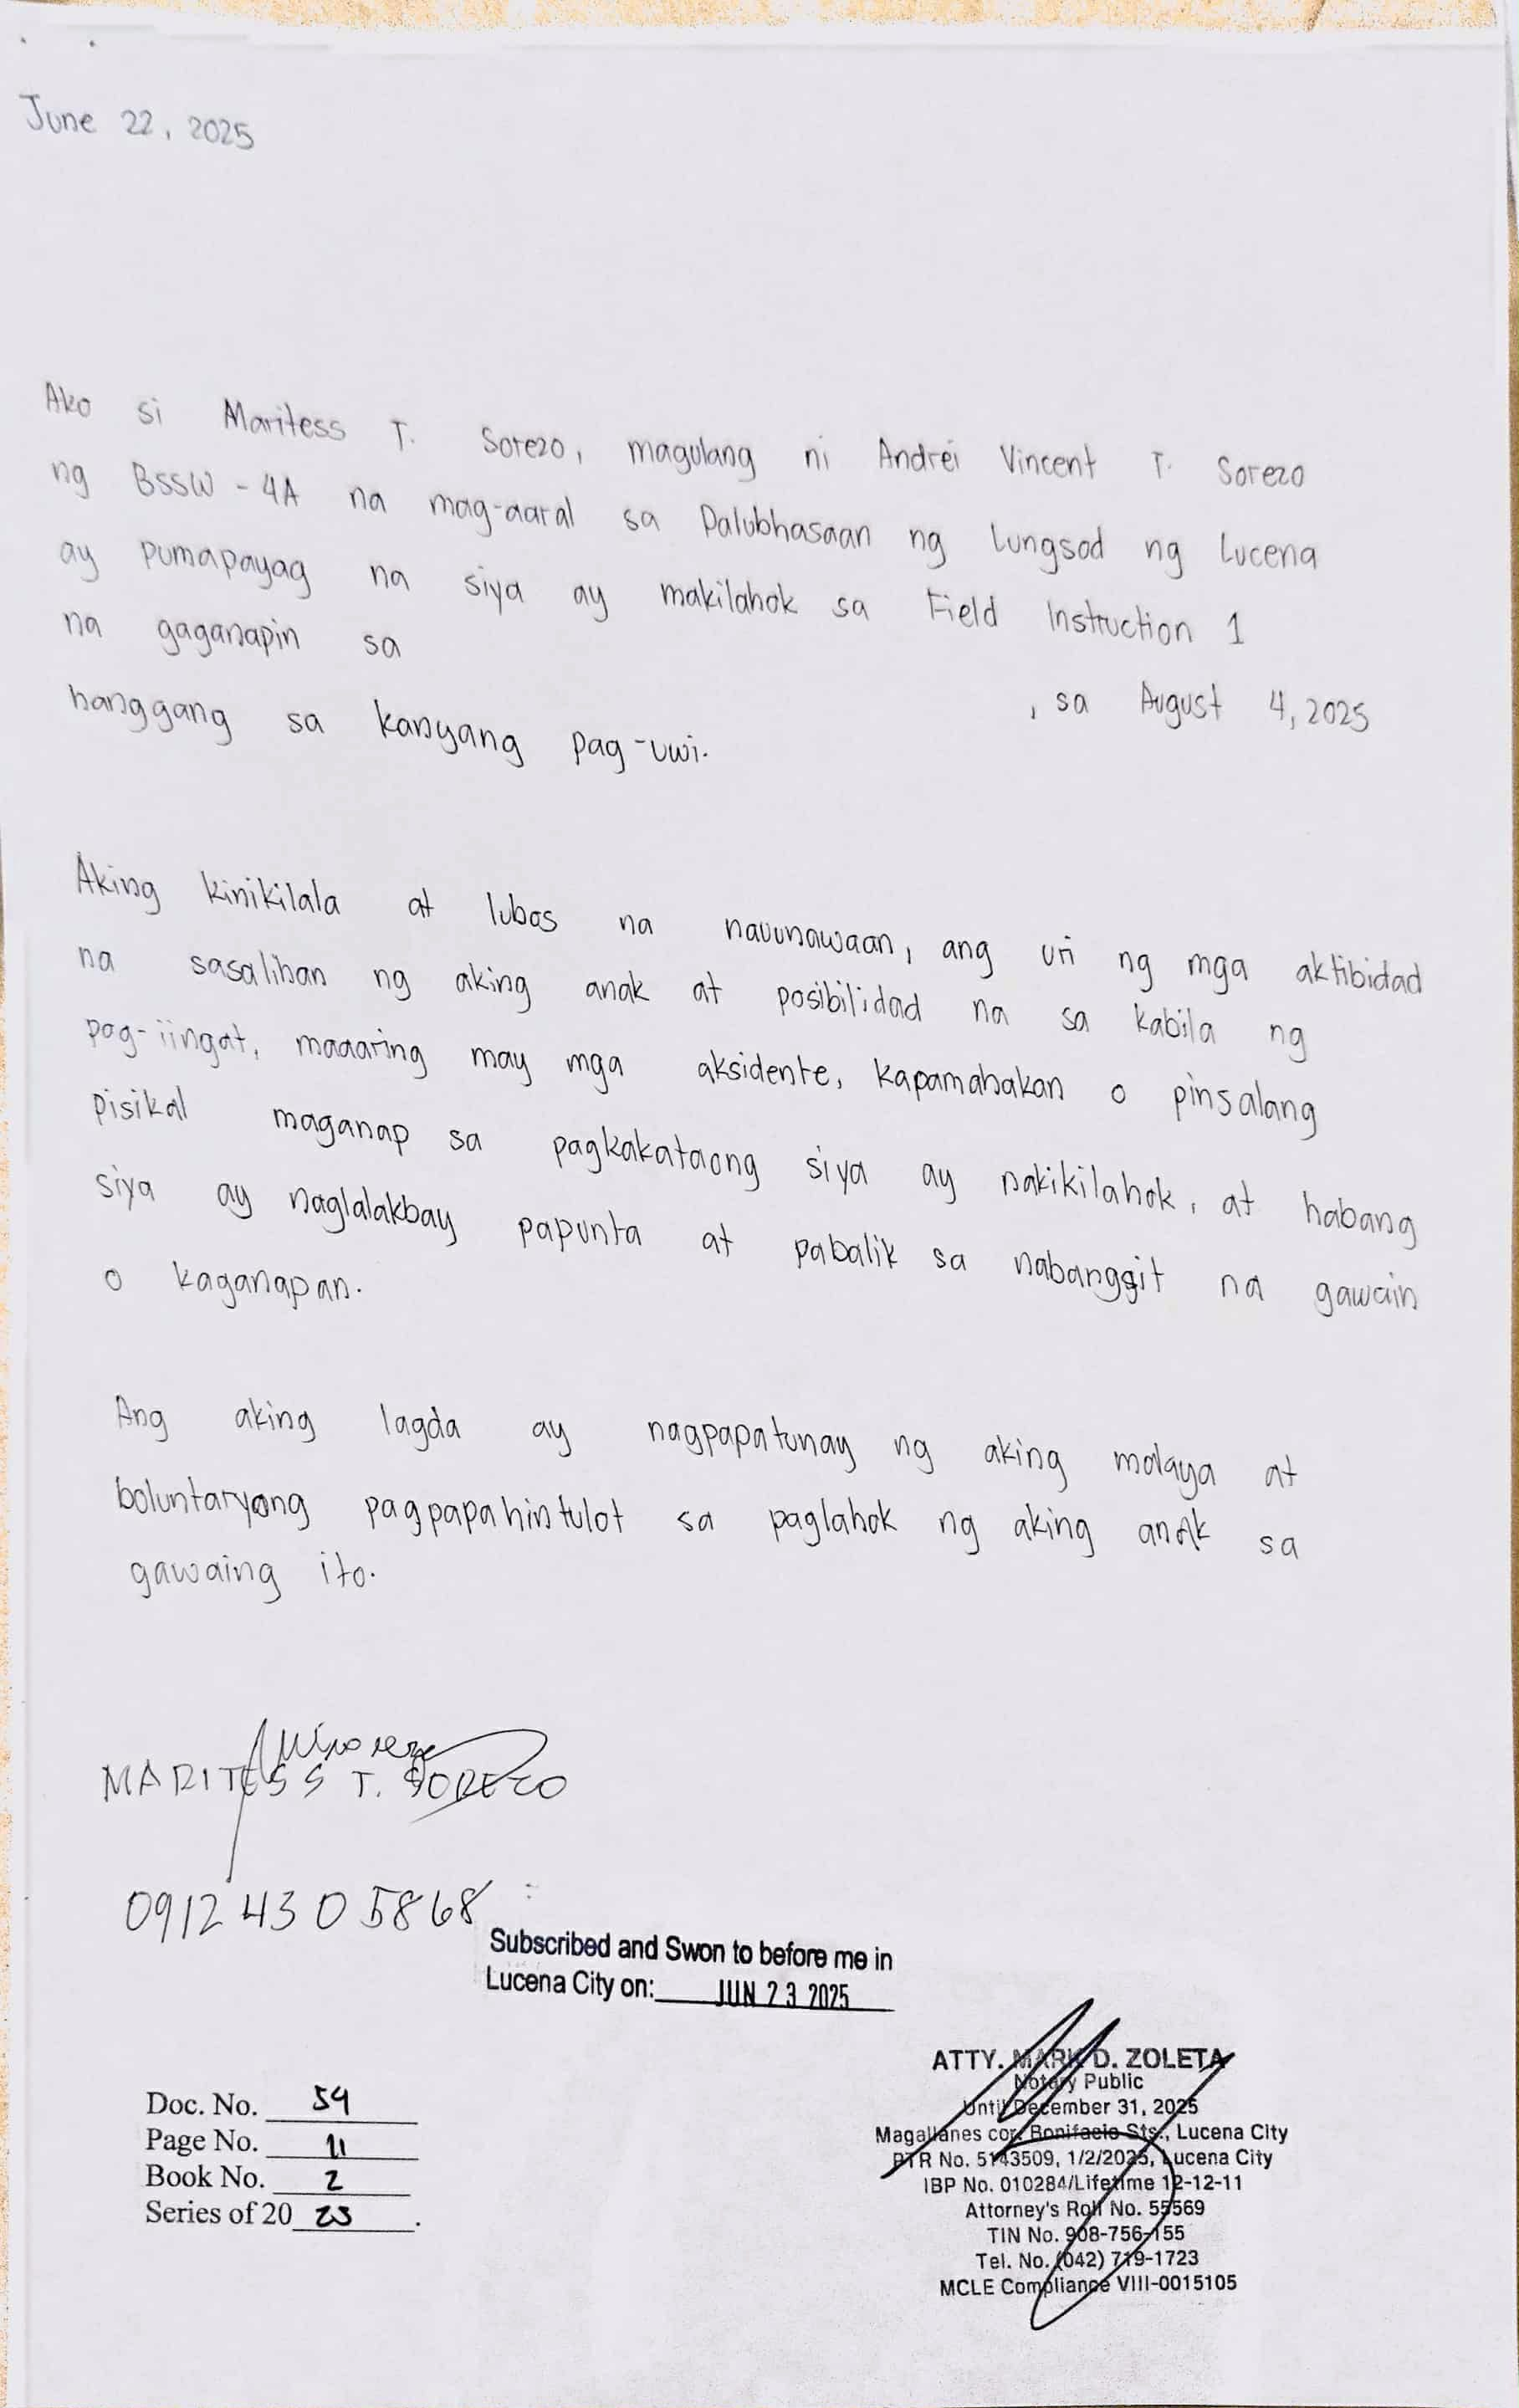 June 22, 2025
Ako si Maritess T. Sorezo, magulang ni Andrei Vincent T. Sorezo
ng BSSW - 4A na mag-aaral sa Dalubhasaan ng Lungsod ng Lucena
ay pumapayag na siya ay makilahok sa Field Instruction 1
na gaganapin sa
, sa August 4, 2025
hanggang sa kanyang pag-uwi.
Aking kinikilala at lubos na nauunawaan, ang uri ng mga aktibidad
na sasalihan ng aking anak at posibilidad na sa kabila ng
pag-iingat, maaaring may mga aksidente, kapamahakan o pinsalang
pisikal maganap sa pagkakataong siya ay nakikilahok, at habang
siya ay naglalakbay papunta at pabalik sa nabanggit na gawain
o kaganapan.
Ang aking lagda ay nagpapatunay ng aking malaya at
boluntaryong pagpapahintulot sa paglahok ng aking anak sa
gawaing ito.
MARITESS T. SOREZO
0912 430 5868
Subscribed and Swon to before me in
Lucena City on: JUN 23 2025
ATTY. MARK D. ZOLETA
Notary Public
Until December 31, 2025
Magallanes cor. Bonifacio Sts., Lucena City
PTR No. 5143509, 1/2/2025, Lucena City
IBP No. 010284/Lifetime 12-12-11
Attorney's Roll No. 55569
TIN No. 908-756-155
Tel. No. (042) 719-1723
MCLE Compliance VIII-0015105
Doc. No. 54
Page No. 11
Book No. 2
Series of 20 25.